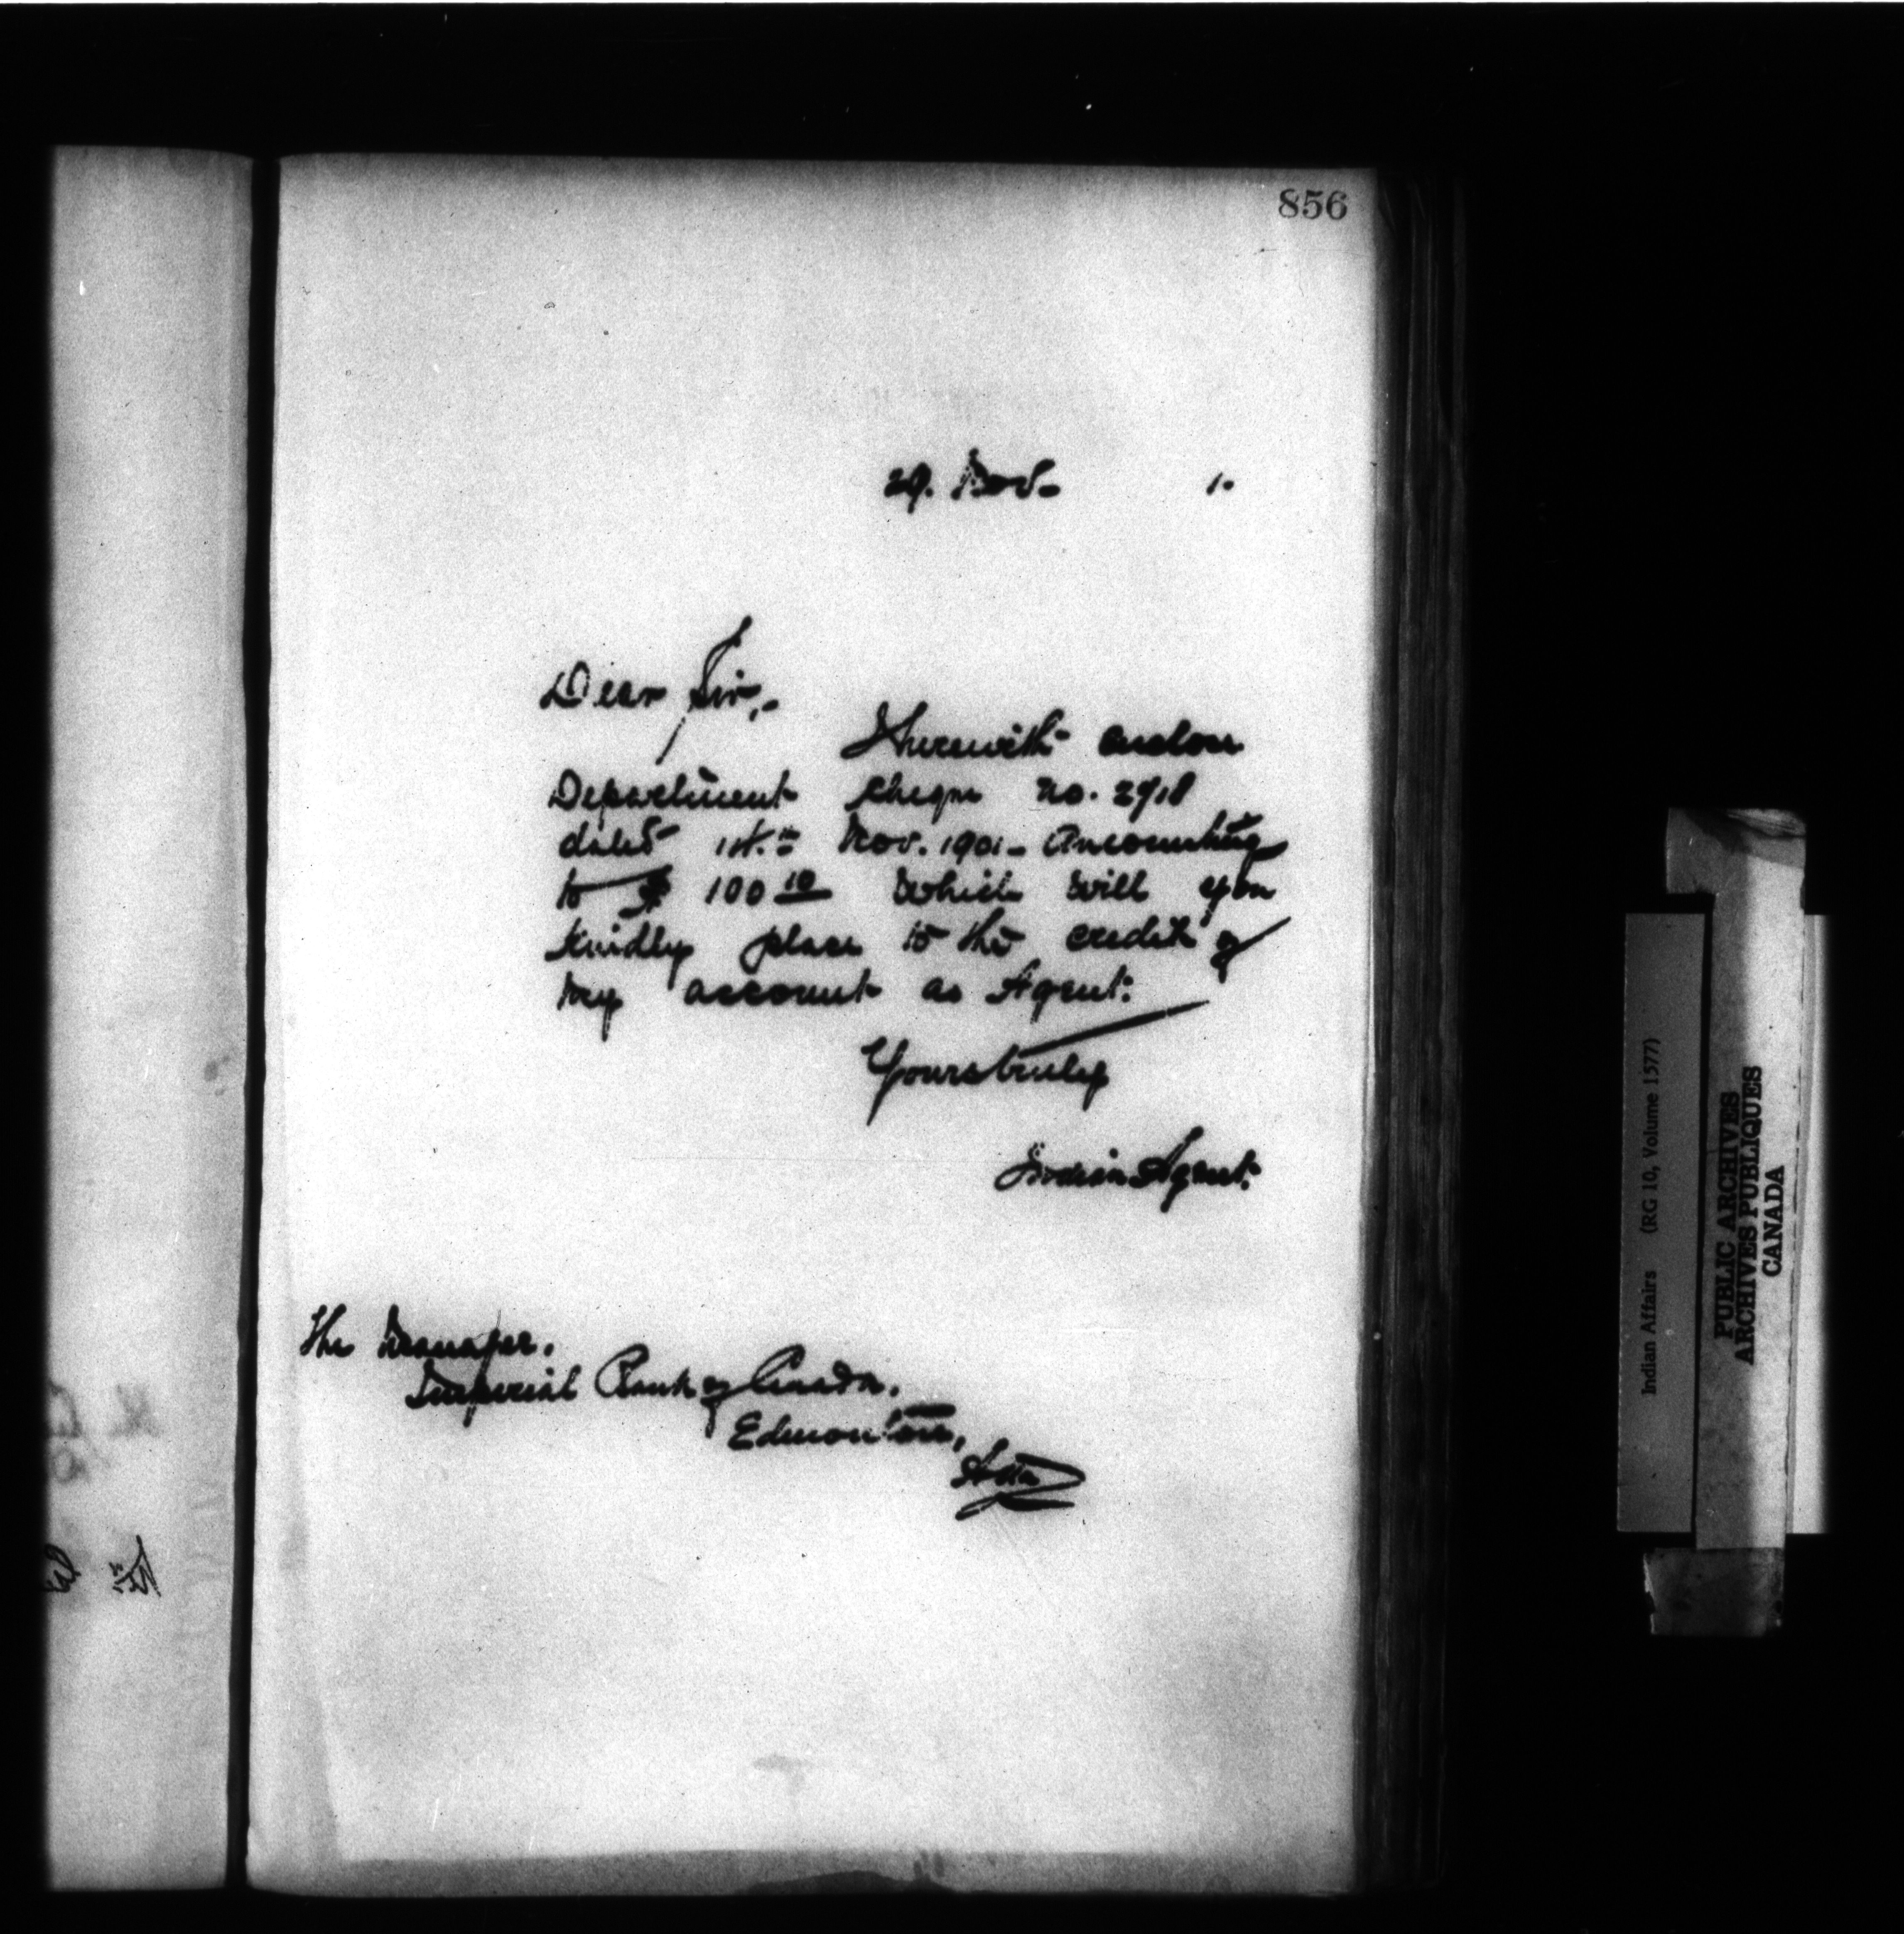 856
29. Nov. 1.
Dear Sir,-
Herewith enclose
Department cheque no. 2718
dated Nov. 1901- Amounting
to $ 100 10 which will you
kindly place to the credit of
my account as Agent.
Yours truly
Indian Agent.
The Manager.
Imperial Bank of Canada.
Edmonton,
Alta
Indian Affairs (RG 10, Volume 1577)
PUBLIC ARCHIVES
ARCHIVES PUBLIQUES
CANADA